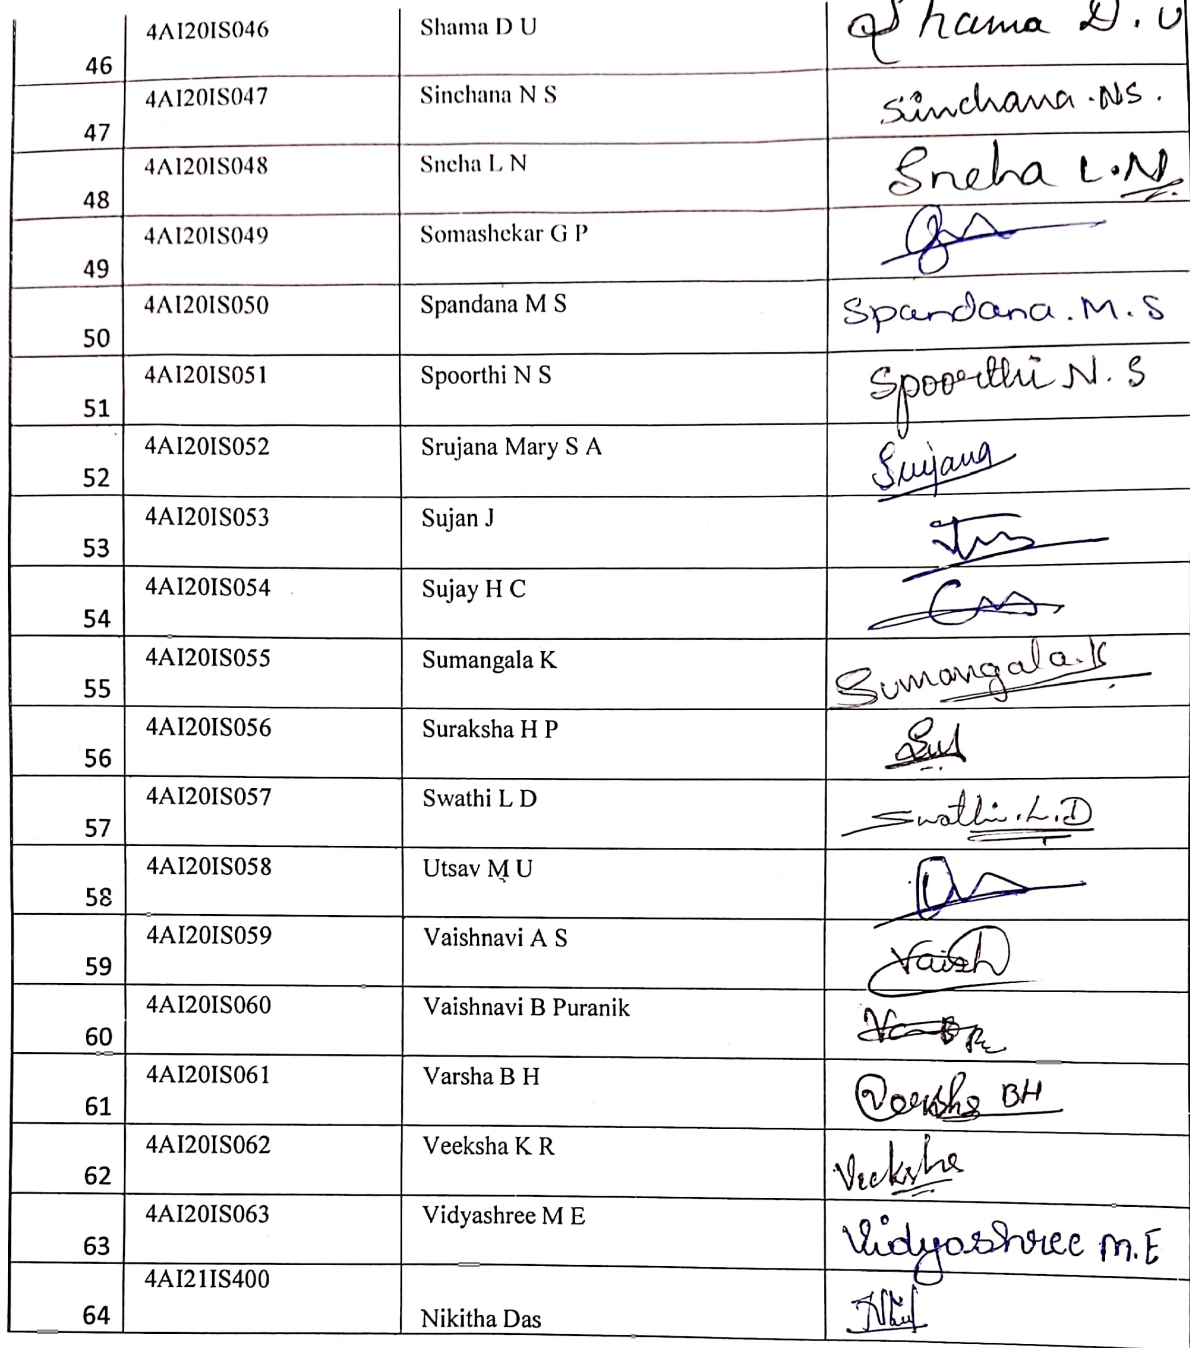 46 4AI20IS046 Shama D U Shama D. U
47 4AI20IS047 Sinchana N S Sinchana.NS.
48 4AI20IS048 Sneha L N Sneha L.N
49 4AI20IS049 Somashekar G P
50 4AI20IS050 Spandana M S Spandana.M.S
51 4AI20IS051 Spoorthi N S Spoorthi N.S
52 4AI20IS052 Srujana Mary S A Srujana
53 4AI20IS053 Sujan J
54 4AI20IS054 Sujay H C
55 4AI20IS055 Sumangala K Sumangala.K
56 4AI20IS056 Suraksha H P
57 4AI20IS057 Swathi L D Swathi.L.D
58 4AI20IS058 Utsav M U
59 4AI20IS059 Vaishnavi A S Vaish
60 4AI20IS060 Vaishnavi B Puranik
61 4AI20IS061 Varsha B H Varsha BH
62 4AI20IS062 Veeksha K R Veeksha
63 4AI20IS063 Vidyashree M E Vidyashree M.E
64 4AI21IS400 Nikitha Das